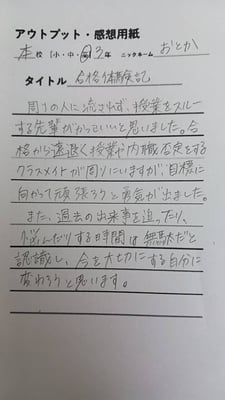 アウトプット・感想用紙
本校 (小・中・高) 3年 ニックネーム おとか
タイトル 合格体験記
周りの人に流されず、授業をスルー
する先輩がかっこいいと思いました。合
格から遠退く授業や内職否定をする
クラスメイトが周りにいますが、目標に
向かって頑張ろうと勇気が出ました。
また、過去の出来事を追ったり、
悩んだりする時間は無駄だと
認識し、今を大切にする自分に
変わろうと思います。